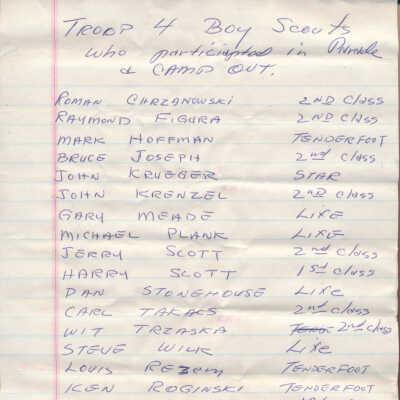 TROOP 4 BOY SCOUTS
who participated in Parade
& CAMP OUT.
ROMAN CHRZANOWSKI 2ND Class
RAYMOND FIGURA 2ND Class
MARK HOFFMAN TENDERFOOT
BRUCE JOSEPH 2nd Class
JOHN KRUEGER STAR
JOHN KRENZEL 2ND Class
GARY MEADE LIFE
MICHAEL PLANK LIFE
JERRY SCOTT 2nd Class
HARRY SCOTT 1st Class
DAN STONEHOUSE LIFE
CARL TAKACS 2nd Class
WIT TRZASKA 2nd Class
STEVE WILK LIFE
LOUIS TENDERFOOT
KEN ROGINSKI TENDERFOOT